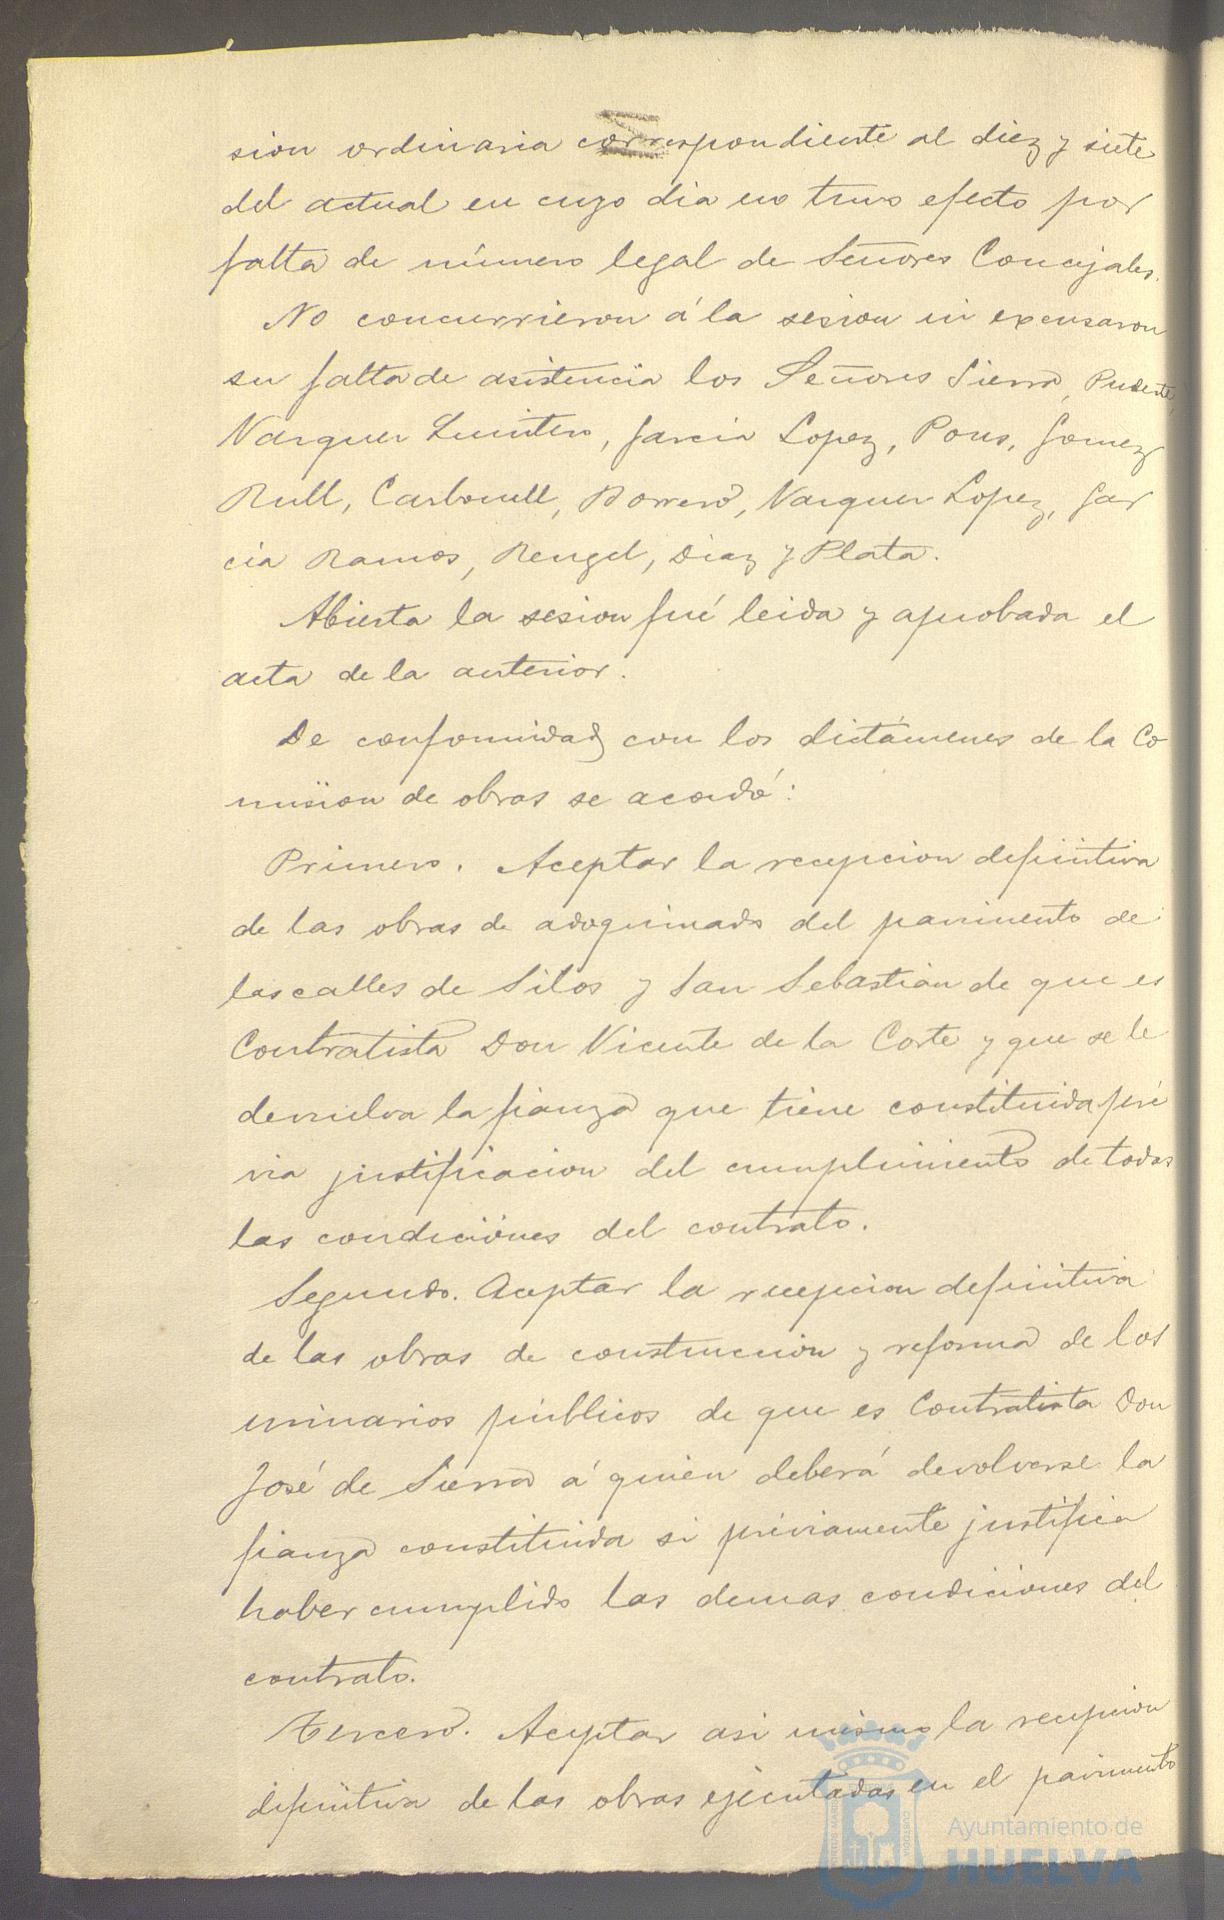 sion ordinaria correspondiente al diez y siete
del actual en cuyo dia no tuvo efecto por
falta de número legal de Señores Concejales.
No concurrieron á la sesion ni excusaron
su falta de asistencia los Señores Sierra,
Vazquez Quintero, Garcia Lopez, Pons, Gomez
Rull, Carbonell, Borrero, Vazquez Lopez, Gar
cia Ramos, Rengel, Diaz y Plata.
Abierta la sesion fué leida y aprobada el
acta de la anterior.
De conformidad con los dictámenes de la Co
mision de obras se acordó:
Primero. Aceptar la recepcion definitiva
de las obras de adoquinado del pavimento de
las calles de Silos y San Sebastian de que es
Contratista Don Vicente de la Corte y que se le
devuelva la fianza que tiene constituida pré
via justificacion del cumplimiento de todas
las condiciones del contrato.
Segundo. Aceptar la recepcion definitiva
de las obras de construccion y reforma de los
urinarios públicos de que es Contratista Don
José de Sierra á quien deberá devolverse la
fianza constituida si préviamente justifica
haber cumplido las demas condiciones del
contrato.
Tercero. Aceptar asi mismo la recepcion
definitiva de las obras ejecutadas en el pavimento
Ayuntamiento de
HUELVA